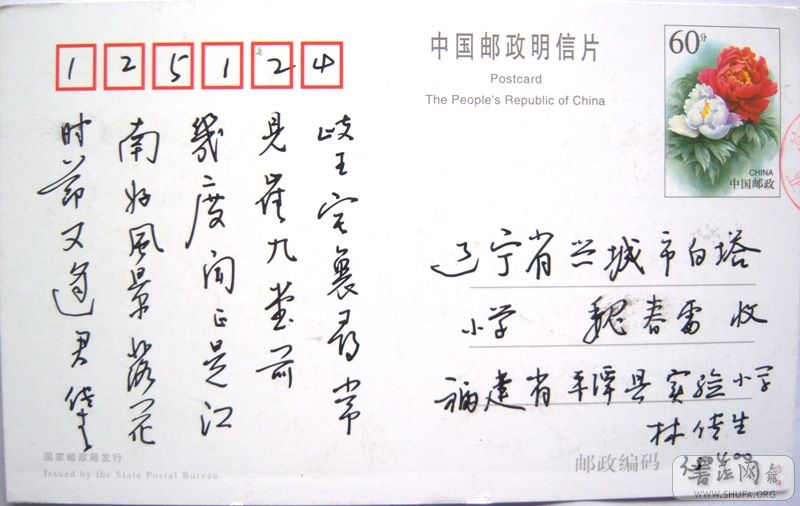 125124
中国邮政明信片
Postcard
The People's Republic of China
60分
CHINA
中国邮政
岐王宅裏尋常
見崔九堂前
幾度闻正是江
南好風景落花
时节又逢君 佳生
辽宁省兴城市白塔
小学 魏春雷 收
福建省平潭县实验小学
林佳生
国家邮政局发行
Issued by the State Postal Bureau
邮政编码
400
書法网
WWW.SHUFA.ORG